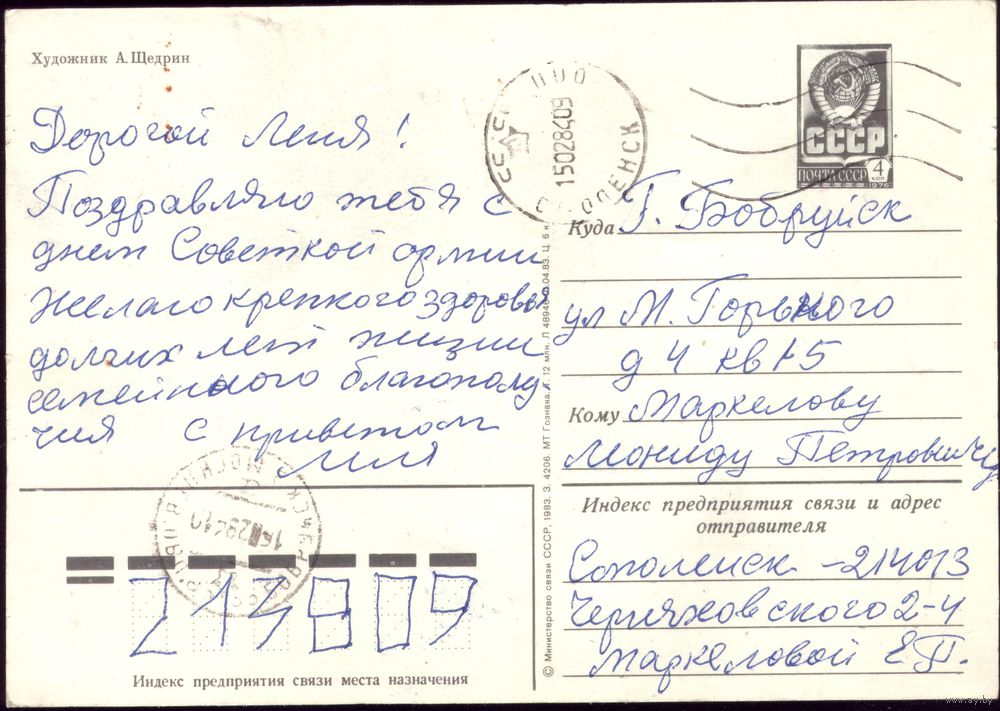 Художник А. Щедрин
Дорогой Леня!
Поздравляю тебя с
днем Советской армии
Желаю крепкого здоровья
долгих лет жизни
семейного благополу-
чия с приветом
СССР
ПОЧТА СССР 4 КОП
1976
СССР ПОО
15028409
СМОЛЕНСК
Куда г. Бобруйск
ул М. Горького
д 4 кв 15
Кому Маркелову
Леониду Петровичу
Индекс предприятия связи и адрес
отправителя
Смоленск - 214013
Черняховского 2-4
Маркеловой Е.П.
213809
Индекс предприятия связи места назначения
© Министерство связи СССР, 1983. З. 4206. МТ Гознака. Т. 12 млн. Л 48940. 0.04.83. Ц. 6 к.
www.ay.by